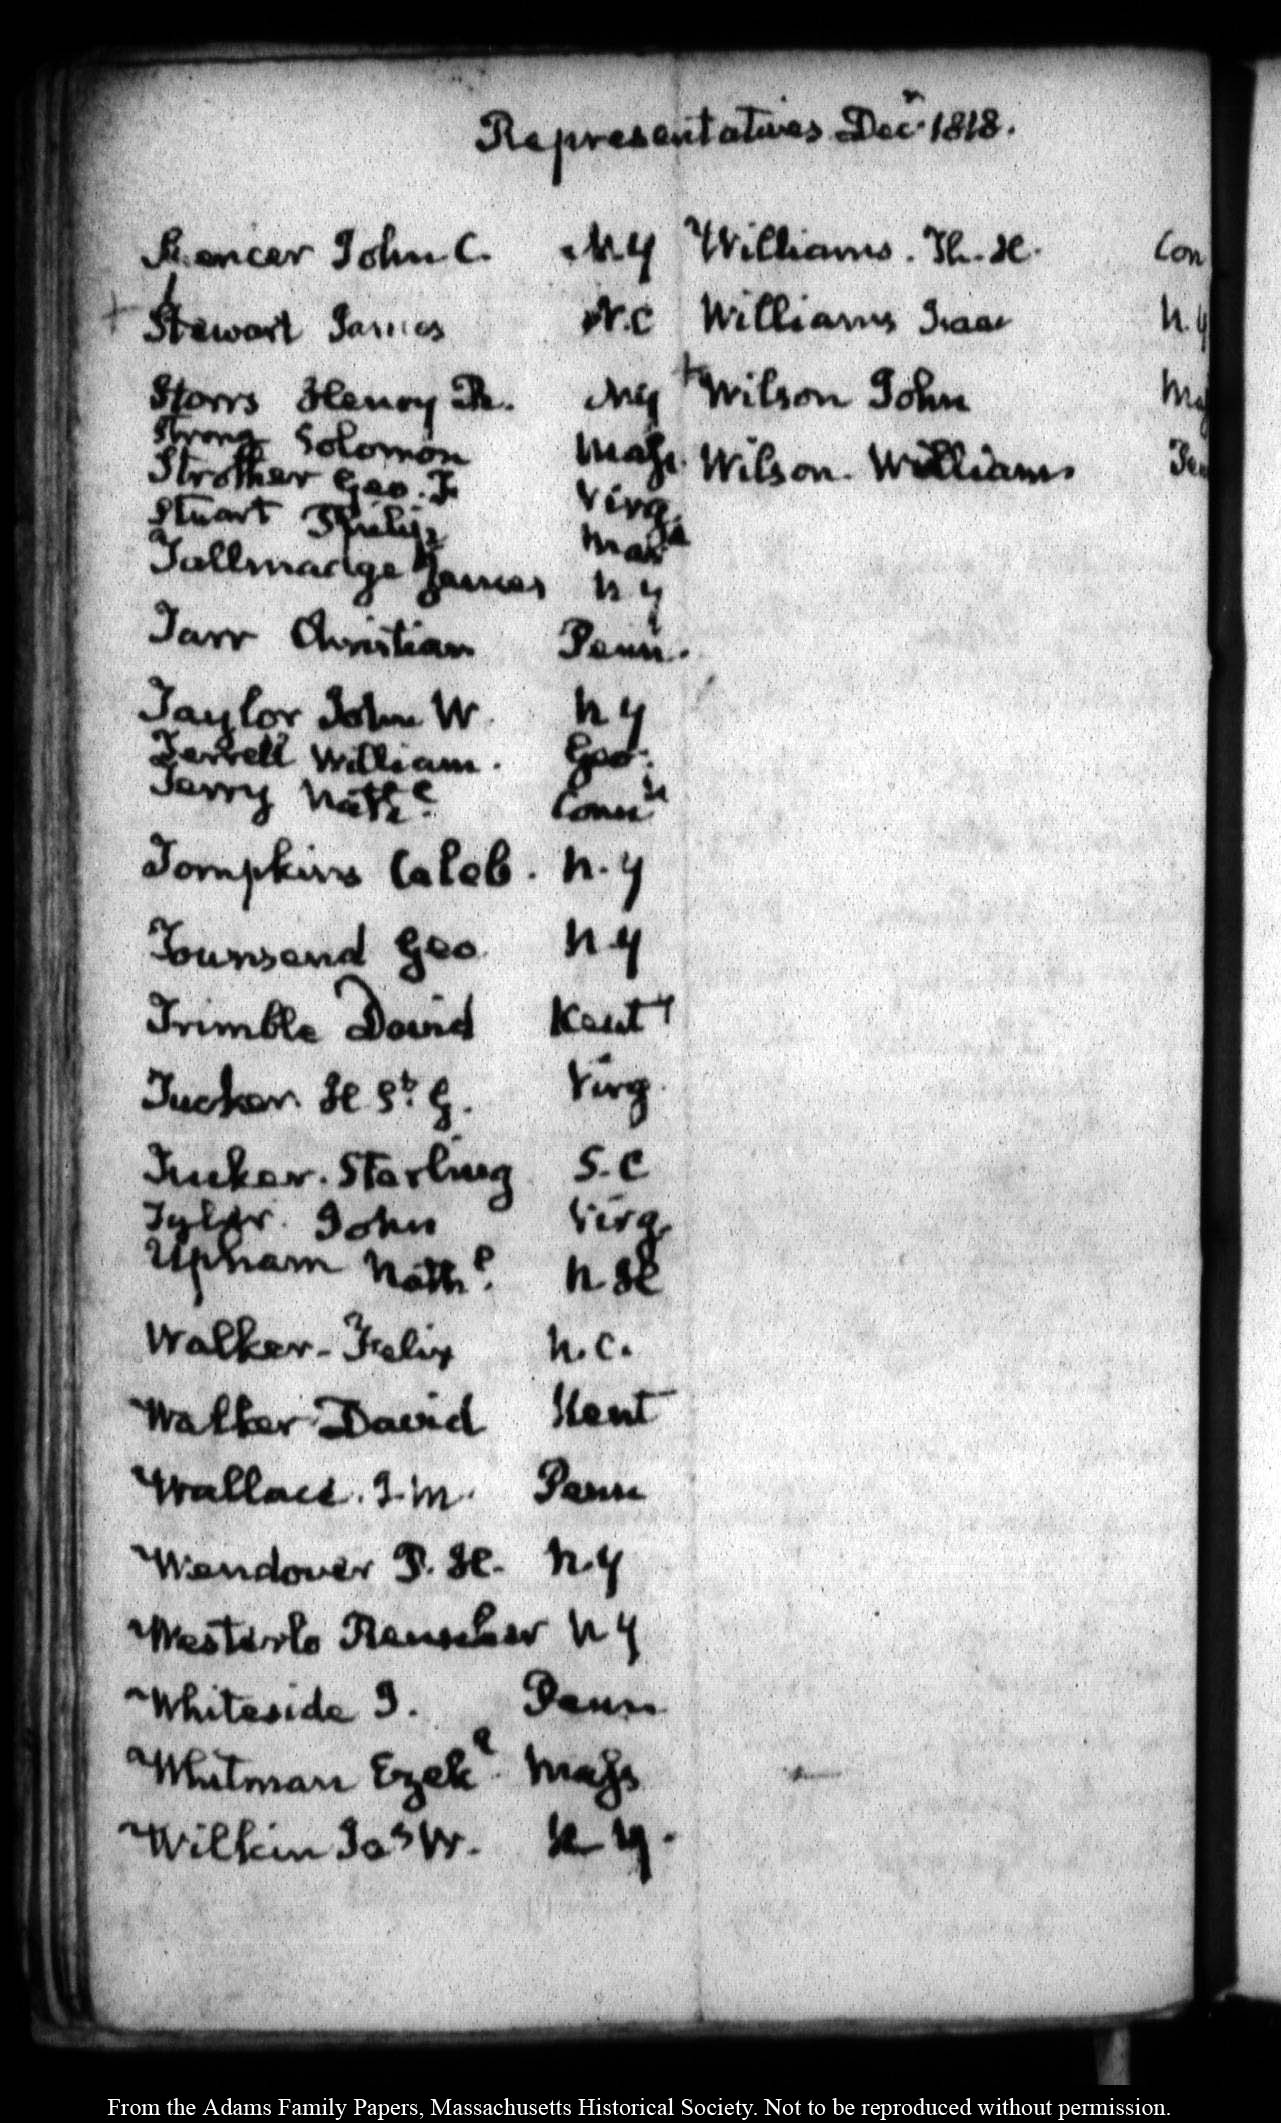 Representatives Decr. 1818.
Spencer John C. N Y
Stewart James N.C
Storrs Henry R. N Y
Strong Solomon Mass.
Strother Geo. F Virg.
Stuart Philip Maryd
Tallmadge James N Y
Tarr Christian Penn.
Taylor John W N Y
Terrell William. Geo.
Terry Nathl. Connt
Tompkins Caleb. N. Y
Townsend Geo N Y
Trimble David Kenty
Tucker H St. G. Virg.
Tucker. Starling S. C
Tyler. John Virg.
Upham Nathl. N H
Walker Felix N. C.
Walker David Kent
Wallace. J. M. Penn
Wendover P. H. N. Y
Westerlo Rensselaer N Y
Whiteside J. Penn
Whitman Ezekl. Mass
Wilkin Jas W. N Y.
Williams. Th. H. Con
Williams Isaac N. Y
+ Wilson John
Wilson. William
From the Adams Family Papers, Massachusetts Historical Society. Not to be reproduced without permission.